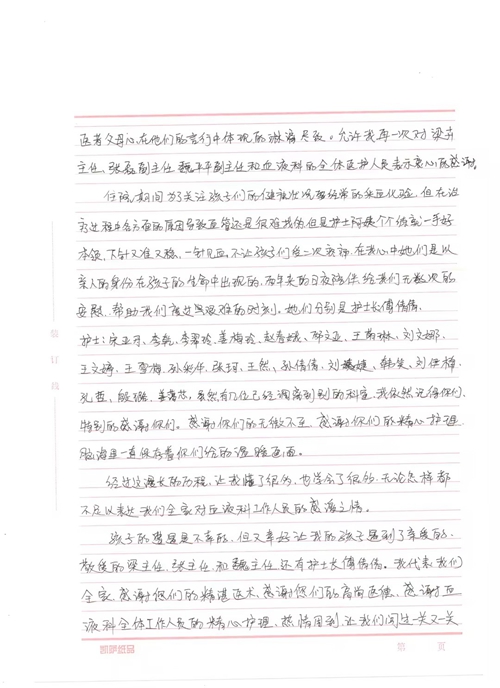 医者父母心,在他们的言行中体现的淋漓尽致。允许我再一次对梁
主任,张磊副主任 魏平平副主任和血液科的全体医护人员表示衷心的感谢,
住院期间为了关注孩子们的健康状况要经常的采血化验,但在治
疗过程中各方面的原因导致血管还是很难找的但是护士阿姨个个练就一手好
本领,下针又准又稳,一针见血,不让孩子们受二次疼痛,在我心中她们是以
亲人的身份在孩子的生命中出现的,两年来的日夜陪伴给我们无数次的
安慰,帮助我们度过艰难的时刻。她们分别是护士长傅倩倩,
护士:宋亚牙,李乾,李翠玲,姜梅玲,赵春媛,邴文亚,王萌琳,刘文娜,
王文婷,王雪梅,孙彩伟,张玥,王然,孙倩倩,刘婕,韩笑,刘
孔哲,殷璐,姜露芸,虽然有几位已经调离到别的科室,我依然记得你们,
特别的感谢你们。感谢你们的无微不至 感谢你们的精心护理
脑海里一直保存着你们给的温暖画面。
经过这漫长的历程,让我懂了很多,也学会了很多,无论怎样都
不足以表达我们全家对血液科工作人员的感激之情。
孩子的遭遇是不幸的,但又幸好让我的孩子遇到了亲爱的,
敬爱的梁主任,张主任,和魏主任还有护士长傅倩倩。我代表我们
全家,感谢您们的精湛医术,感谢您们的高尚医德,感谢血
液科全体工作人员的精心护理,热情周到,让我们闯过一关又一关
装订线
凯萨纸品
第 页